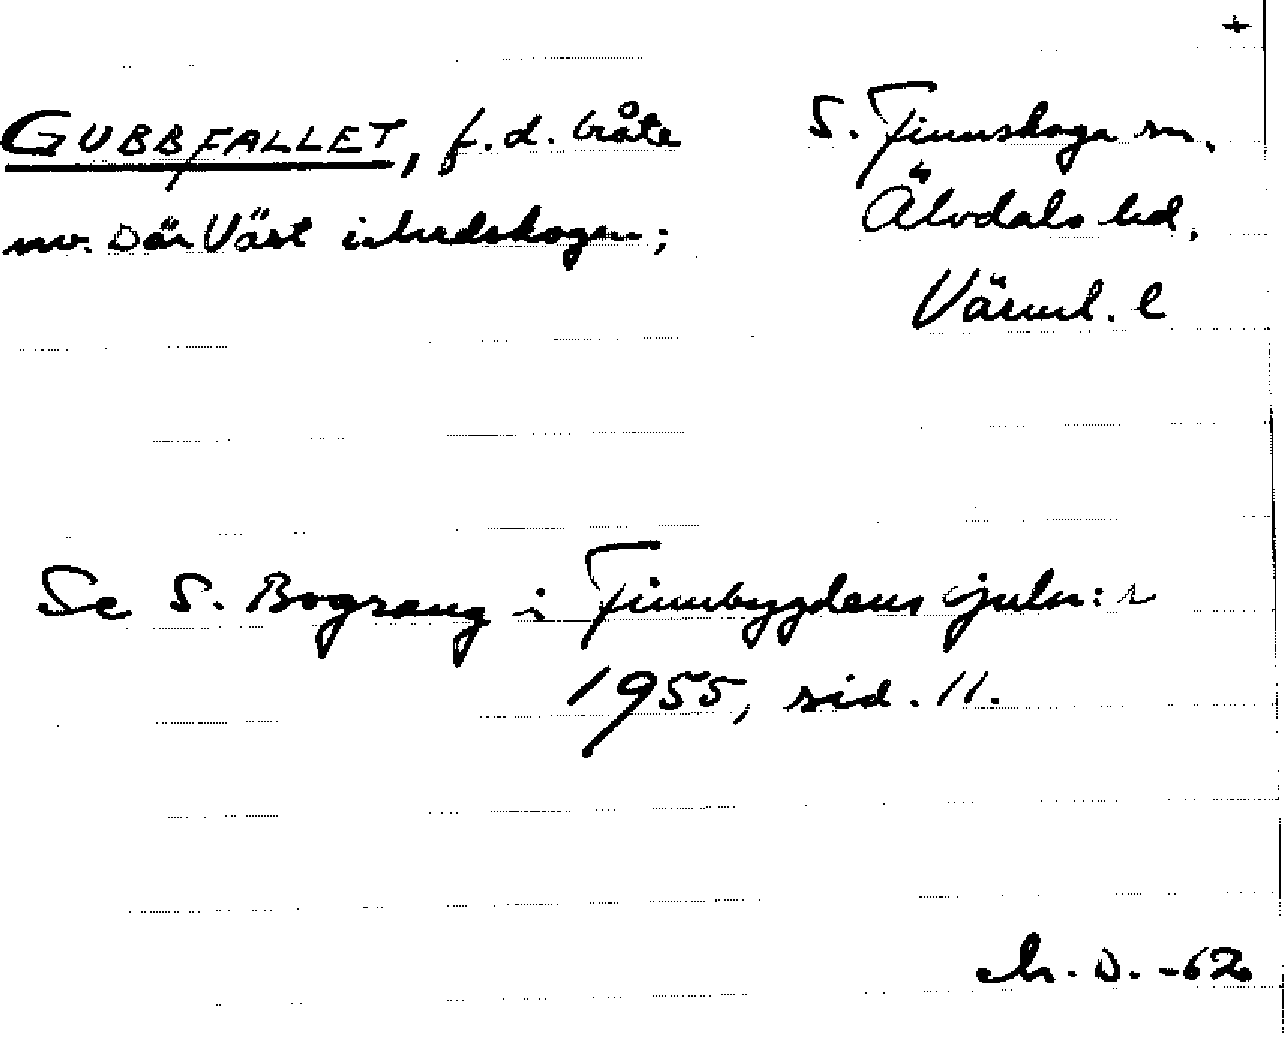 +
GUBBFALLET, f.d. bråte
nv. Där Väst i
S. Finnskoga sn.
Älvdals hd,
Värml. l
Se S. Bograng i Finnbygdens juln:r
1955, sid. 11.
D. -62